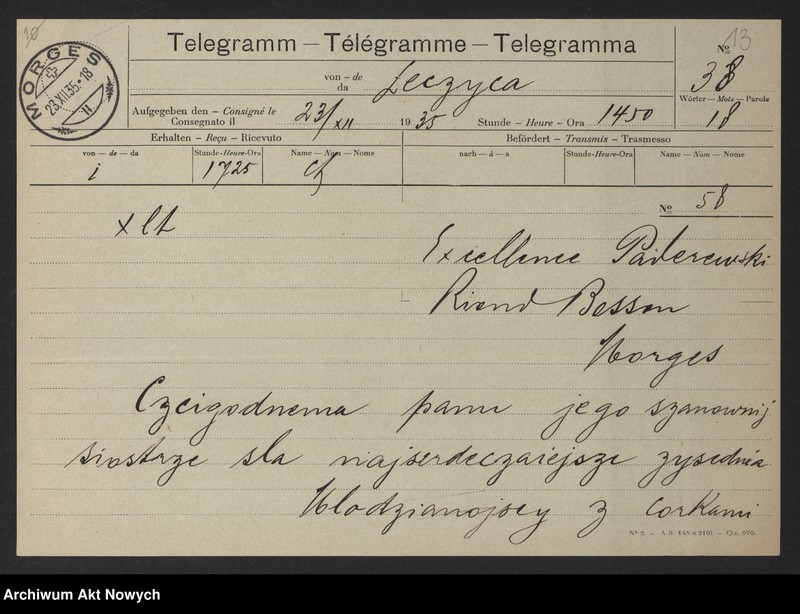 10
13
MORGES
23.XII.35.-18
Telegramm — Télégramme — Telegramma
No
38
von - de
da
Leczyca
Wörter — Mots — Parole
18
Aufgegeben den - Consigné le
Consegnato il
23/XII 1935
Stunde — Heure - Ora 1450
Erhalten - Reçu - Ricevuto
Befördert - Transmis - Trasmesso
von — de — da
Stunde-Heure-Ora
Name — Nom — Nome
nach — à — a
Stunde-Heure-Ora
Name — Nom — Nome
i 1725
No 58
x lt
Excellence Paderewski
Riond Bosson
Morges
Czcigodnema panu jego szanownij
siostrze sla najserdeczniejsze zysednia
Wlodzianojscy z corkami
No 2. — A.5 (148×210) — Qu. 070.
Archiwum Akt Nowych